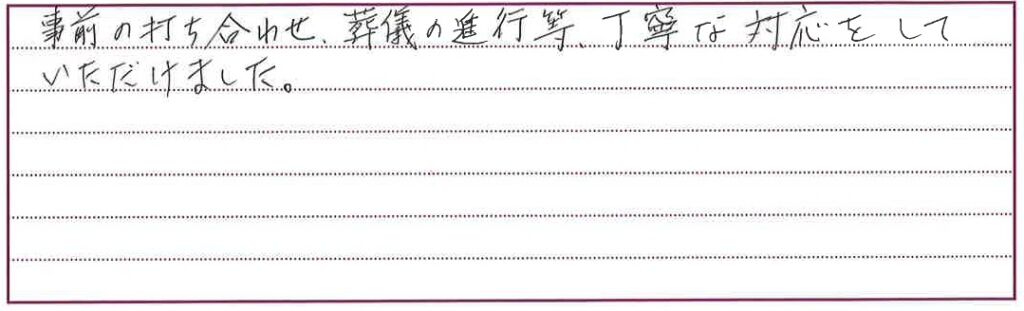 事前の打ち合わせ、葬儀の進行等、丁寧な対応をして
いただけました。